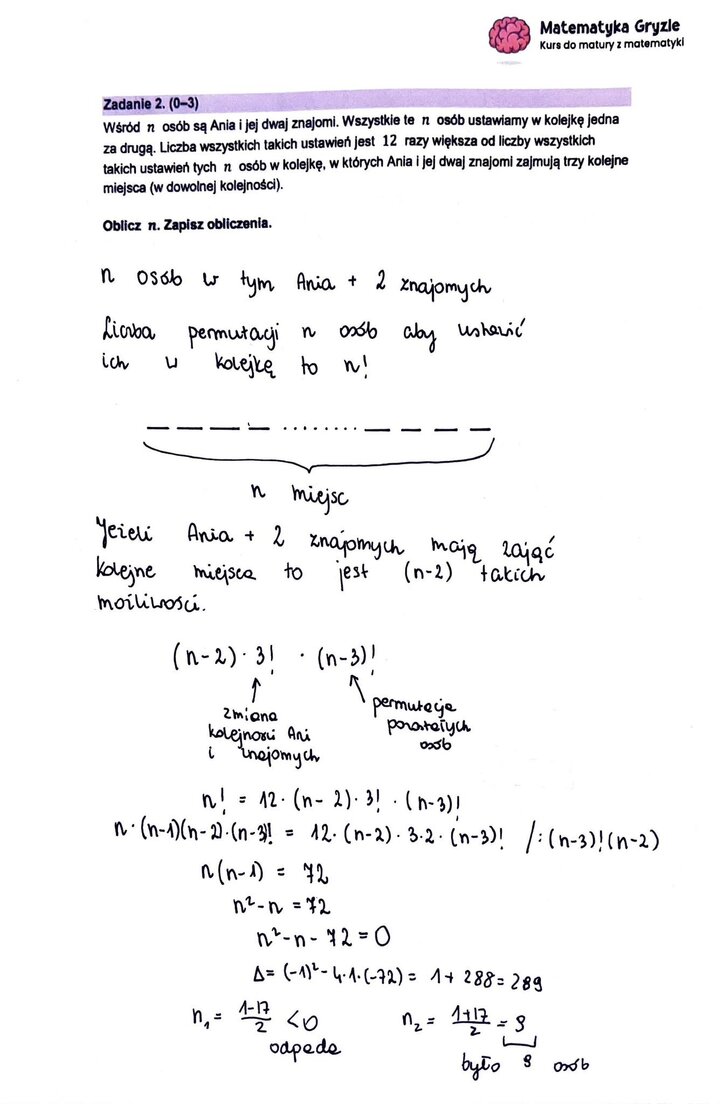 Matematyka Gryzie
Kurs do matury z matematyki
Zadanie 2. (0–3)
Wśród n osób są Ania i jej dwaj znajomi. Wszystkie te n osób ustawiamy w kolejkę jedna
za drugą. Liczba wszystkich takich ustawień jest 12 razy większa od liczby wszystkich
takich ustawień tych n osób w kolejkę, w których Ania i jej dwaj znajomi zajmują trzy kolejne
miejsca (w dowolnej kolejności).
Oblicz n. Zapisz obliczenia.
n osób w tym Ania + 2 znajomych
Liczba permutacji n osób aby ustawić
ich w kolejkę to n!
n miejsc
Jeżeli Ania + 2 znajomych mają zająć
kolejne miejsca to jest (n-2) takich
możliwości.
(n-2) · 3! · (n-3)!
zmiana
kolejności Ani
i znajomych
permutacja
pozostałych
osób
n! = 12 · (n-2) · 3! · (n-3)!
n · (n-1)(n-2)·(n-3)! = 12 · (n-2) · 3·2 · (n-3)! /:(n-3)!(n-2)
n(n-1) = 72
n²-n = 72
n²-n-72 = 0
Δ = (-1)²-4·1·(-72) = 1+288 = 289
n₁ = \frac{1-17}{2} < 0
odpada
n₂ = \frac{1+17}{2} = 9
było 9 osób